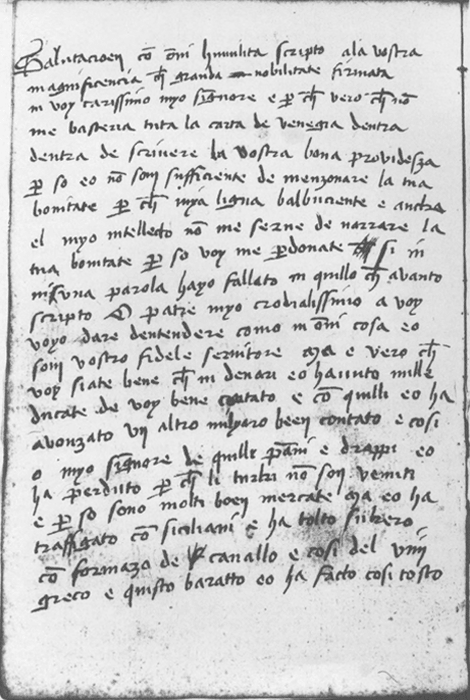 Salutacoen cō ōni humilita scripto ala vostra
magnificencia ch̄ granda nobilitate firmata
in voy carissimo myo signore e ꝑ ch̄ vero ch̄ nō
me basteria tuta la carta de venegia dentra
dentra de scrivere la vostra bona providesza
ꝑ so eo nō son sufficiente de menzonare la tua
bonitate ꝑ ch̄ mya ligua balbuciente e anchra
el myo intellecto nō me serue de narrare la
tua bonitate ꝑ so voy me ꝑdonate si in
nisuna parola hayo fallato in quillo ch̄ avanto
scripto O patre myo crodialissimo a voy
voyo dare dentendere como in ōni cosa eo
son vostro fidele seruitore ma e vero ch̄
voy siate bene ch̄ in denari eo hauuto mille
ducate de voy bene contato e cō quilli eo ha
avonzato vn altro mlyaro been contato e cosi
o myo signore de quilli pāni e drappi eo
ha perduto ꝑ ch̄ li turki nō son venuti
e ꝑ so sono molti boen mercate ma eo ha
traffigato cō siciliani e ha tolto
cō formazo de cauallo e cosi del vin
greco e quisto baratto eo ha facto cosi tosto